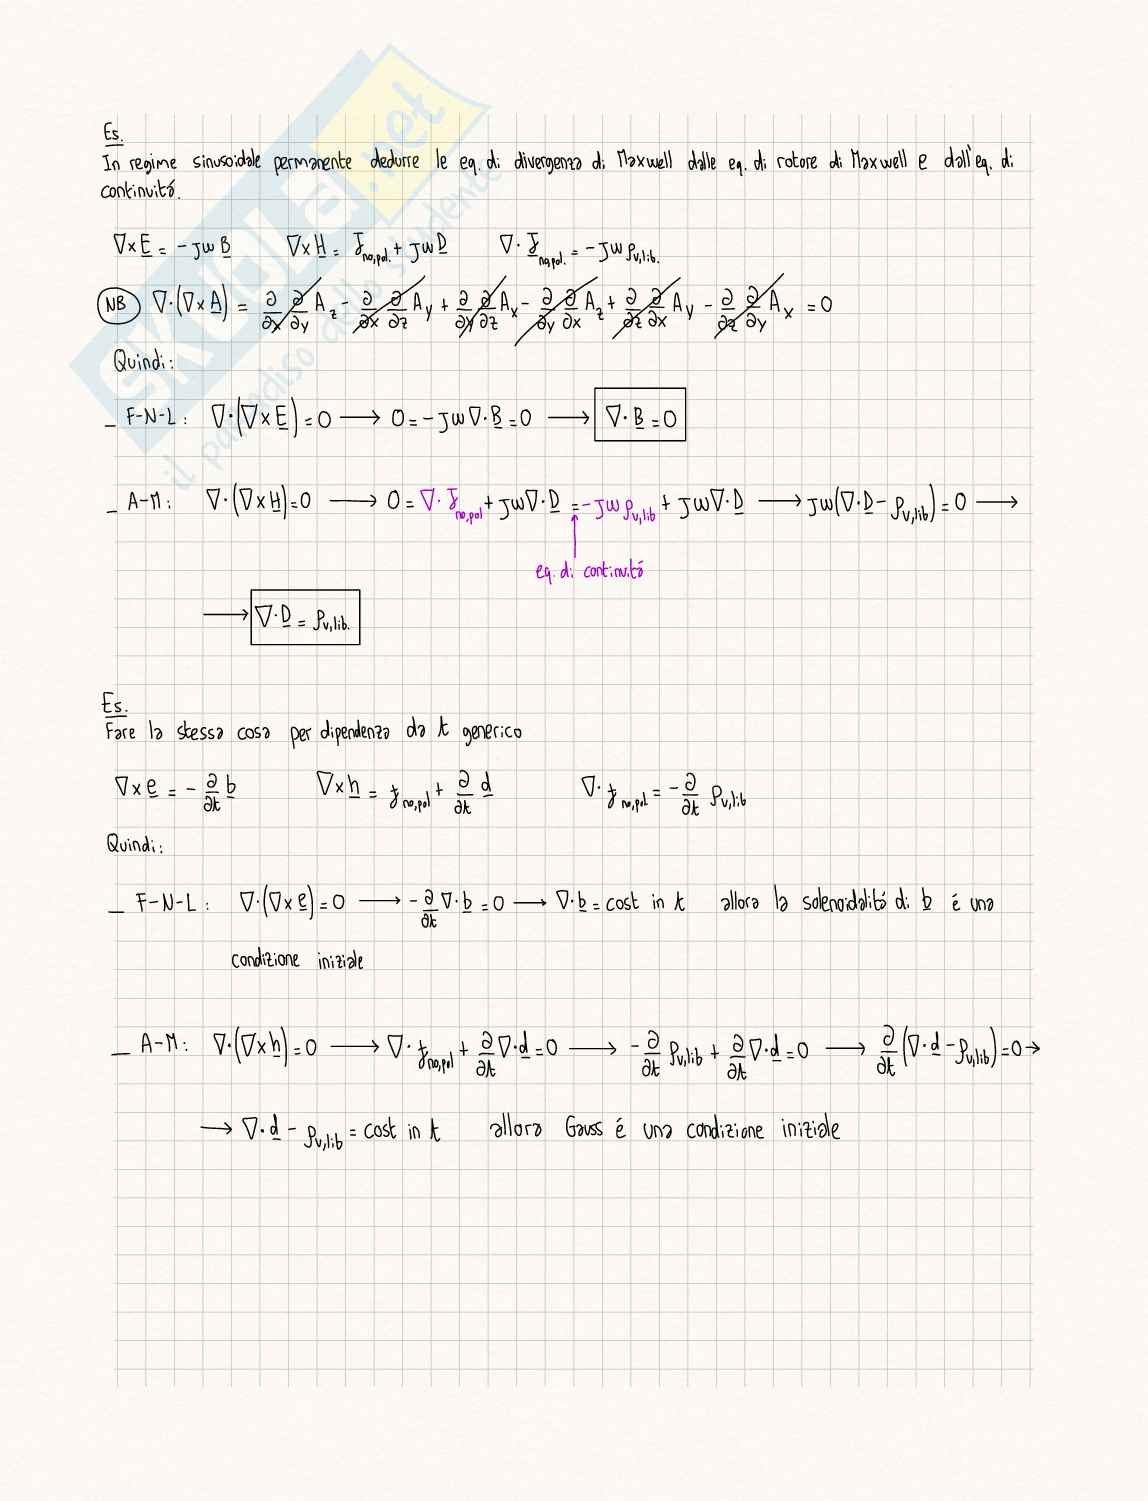 Es.
In regime sinusoidale permanente dedurre le eq. di divergenza di Maxwell dalle eq. di rotore di Maxwell e dall'eq. di
continuitá.
∇×E = -jωB   ∇×H = J_no,pol. + jωD   ∇·J_no,pol. = -jωρ_v,lib.
NB ∇·(∇×A) = ∂/∂x ∂/∂y A_z - ∂/∂x ∂/∂z A_y + ∂/∂y ∂/∂z A_x - ∂/∂y ∂/∂x A_z + ∂/∂z ∂/∂x A_y - ∂/∂z ∂/∂y A_x = 0
Quindi:
_ F-N-L: ∇·(∇×E) = 0 → 0 = -jω∇·B = 0 → ∇·B = 0
_ A-M: ∇·(∇×H) = 0 → 0 = ∇·J_no,pol + jω∇·D = -jωρ_v,lib + jω∇·D → jω(∇·D - ρ_v,lib) = 0 →
eq. di continuitá
→ ∇·D = ρ_v,lib.
Es.
Fare la stessa cosa per dipendenza da t generico
∇×e = -∂/∂t b   ∇×h = j_no,pol + ∂/∂t d   ∇·j_no,pol = -∂/∂t ρ_v,lib
Quindi:
_ F-N-L: ∇·(∇×e) = 0 → -∂/∂t ∇·b = 0 → ∇·b = cost in t allora la solenoidalitá di b é una
condizione iniziale
_ A-M: ∇·(∇×h) = 0 → ∇·j_no,pol + ∂/∂t ∇·d = 0 → -∂/∂t ρ_v,lib + ∂/∂t ∇·d = 0 → ∂/∂t (∇·d - ρ_v,lib) = 0 →
→ ∇·d - ρ_v,lib = cost in t allora Gauss é una condizione iniziale
SKUOLA.net
il paradiso dello studente